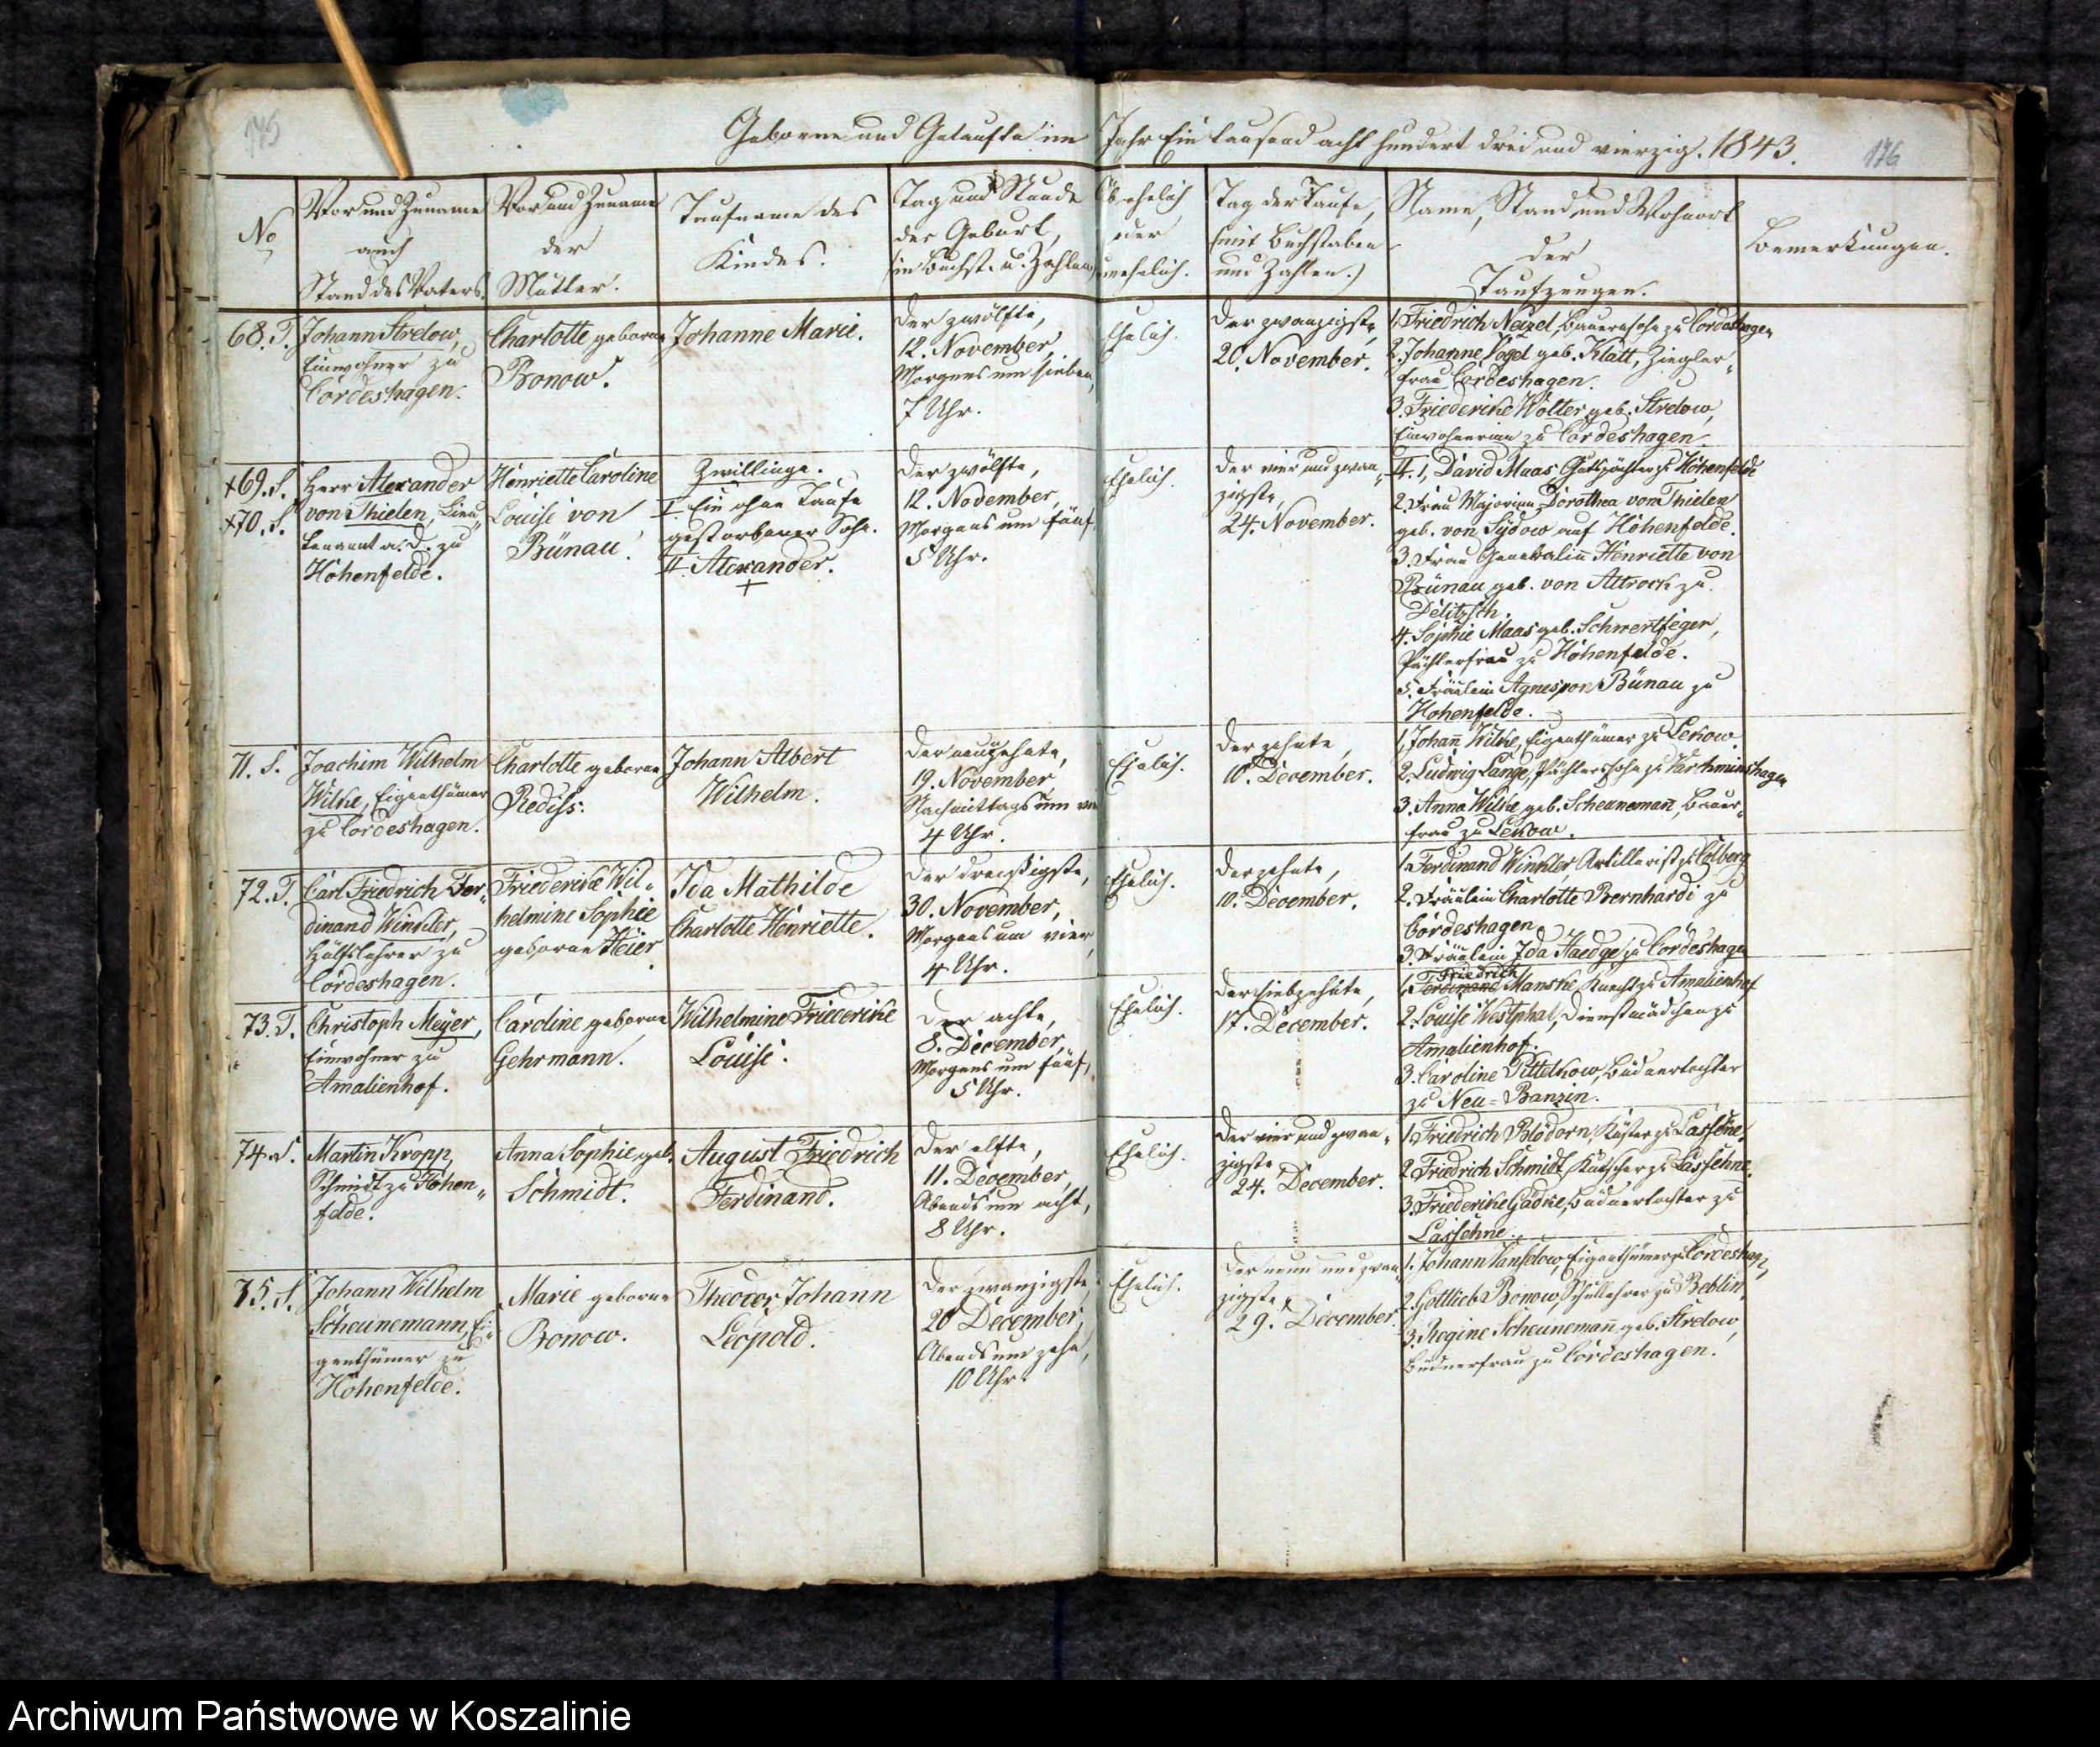 175
Geborne und Getaufte im Jahr Ein tausend acht hundert drei und vierzig. 1843.
176
No
Vor und Zuname
auch
Stand des Vaters.
Vor und Zuname
der
Mutter.
Taufname des
Kindes.
Tag und Stunde
der Geburt,
(in Buchst. u. Zahlen)
Ob ehelich
oder
unehelich.
Tag der Taufe,
(mit Buchstaben
und Zahlen.)
Name, Stand und Wohnort
der
Taufzeugen.
Bemerkungen.
68. T.
Johann Strelow,
Einwohner zu
Cordeshagen.
Charlotte geborne
Bonow.
Johanne Marie.
Der zwölfte,
12. November,
Morgens um sieben,
7 Uhr.
Ehelich.
Der zwanzigste,
20. November.
1, Friedrich Neizel, Bauernsohn zu Cordeshagen
2. Johanne Vogel geb. Klatt, Ziegler-
frau Cordeshagen.
3. Friederike Wolter geb. Strelow,
Einwohnerinn zu Cordeshagen.
+69. S.
+70. S.
Herr Alexander
von Thielen, Lieu-
tenannt a. D. zu
Hohenfelde.
Henriette Caroline
Louise von
Bünau.
Zwillinge.
I. Ein ohne Taufe
gestorbener Sohn.
II. Alexander.
+
Der zwölfte,
12. November,
Morgens um fünf,
5 Uhr.
Ehelich.
Der vier und zwan-
zigste,
24. November.
II. 1, David Maas Gutspächter zu Hohenfelde
2. Frau Majorinn Dorothea von Thielen
geb. von Sydow auf Hohenfelde.
3. Frau Generalin Henriette von
Bünau geb. von Altrock zu
Delitzsch.
4. Sophie Maas geb. Schwertfeger,
Pächterfrau zu Hohenfelde.
5. Fräulein Agnes von Bünau zu
Hohenfelde.
71. S.
Joachim Wilhelm
Wilke, Eigenthümer
zu Cordeshagen.
Charlotte geborne
Rediss.
Johann Albert
Wilhelm.
Der neunzehnte,
19. November,
Nachmittags um vier
4 Uhr.
Ehelich.
Der zehnte,
10. December.
1, Johann Wilke, Eigenthümer zu Lekow.
2. Ludwig Lange, Pächterssohn zu Varchminshagen
3. Anna Wilke geb. Scheunemann, Bauer-
frau zu Lekow.
72. T.
Carl Friedrich Fer-
dinand Winkler,
Hülfslehrer zu
Cordeshagen.
Friederike Wil-
helmine Sophie
geborne Heier.
Ida Mathilde
Charlotte Henriette.
Der dreissigste,
30. November,
Morgens um vier,
4 Uhr.
Ehelich.
Der zehnte,
10. December.
1. Ferdinand Winkler Artillerist zu Colberg
2. Fräulein Charlotte Bernhardi zu
Cordeshagen
3. Fräulein Ida Haedge zu Cordeshagen
73. T.
Christoph Meyer,
Einwohner zu
Amalienhof.
Caroline geborne
Gehrmann.
Wilhelmine Friederike
Louise.
Der achte,
8. December,
Morgens um fünf,
5 Uhr.
Ehelich.
Der siebzehnte,
17. December.
Friedrich
1, Ferdinand Manske, Knecht zu Amalienhof
2. Louise Westphal, Dienstmädchen zu
Amalienhof.
3. Caroline Pittelkow, Büdnertochter
zu Neu-Banzin.
74. S.
Martin Kropp,
Schmidt zu Hohen-
felde.
Anna Sophie geb.
Schmidt.
August Friedrich
Ferdinand.
Der elfte,
11. December,
Abends um acht,
8 Uhr.
Ehelich.
Der vier und zwan-
zigste
24. December.
1. Friedrich Blödorn, Küster zu Lassehne.
2. Friedrich Schmidt, Kutscher zu Lassehne.
3. Friederike Gädke, Büdnertochter zu
Lassehne.
75. S.
Johann Wilhelm
Scheunemann, Ei-
genthümer zu
Hohenfelde.
Marie geborne
Bonow.
Theodor Johann
Leopold.
Der zwanzigste,
20 December,
Abends um zehn,
10 Uhr.
Ehelich.
Der neun und zwan-
zigste,
29. December.
1. Johann Vanselow, Eigenthümer zu Cordeshagen,
2. Gottlieb Bonow, Schullehrer zu Beblin.
3. Regine Scheunemann geb. Strelow,
Büdnerfrau zu Cordeshagen.
Archiwum Państwowe w Koszalinie